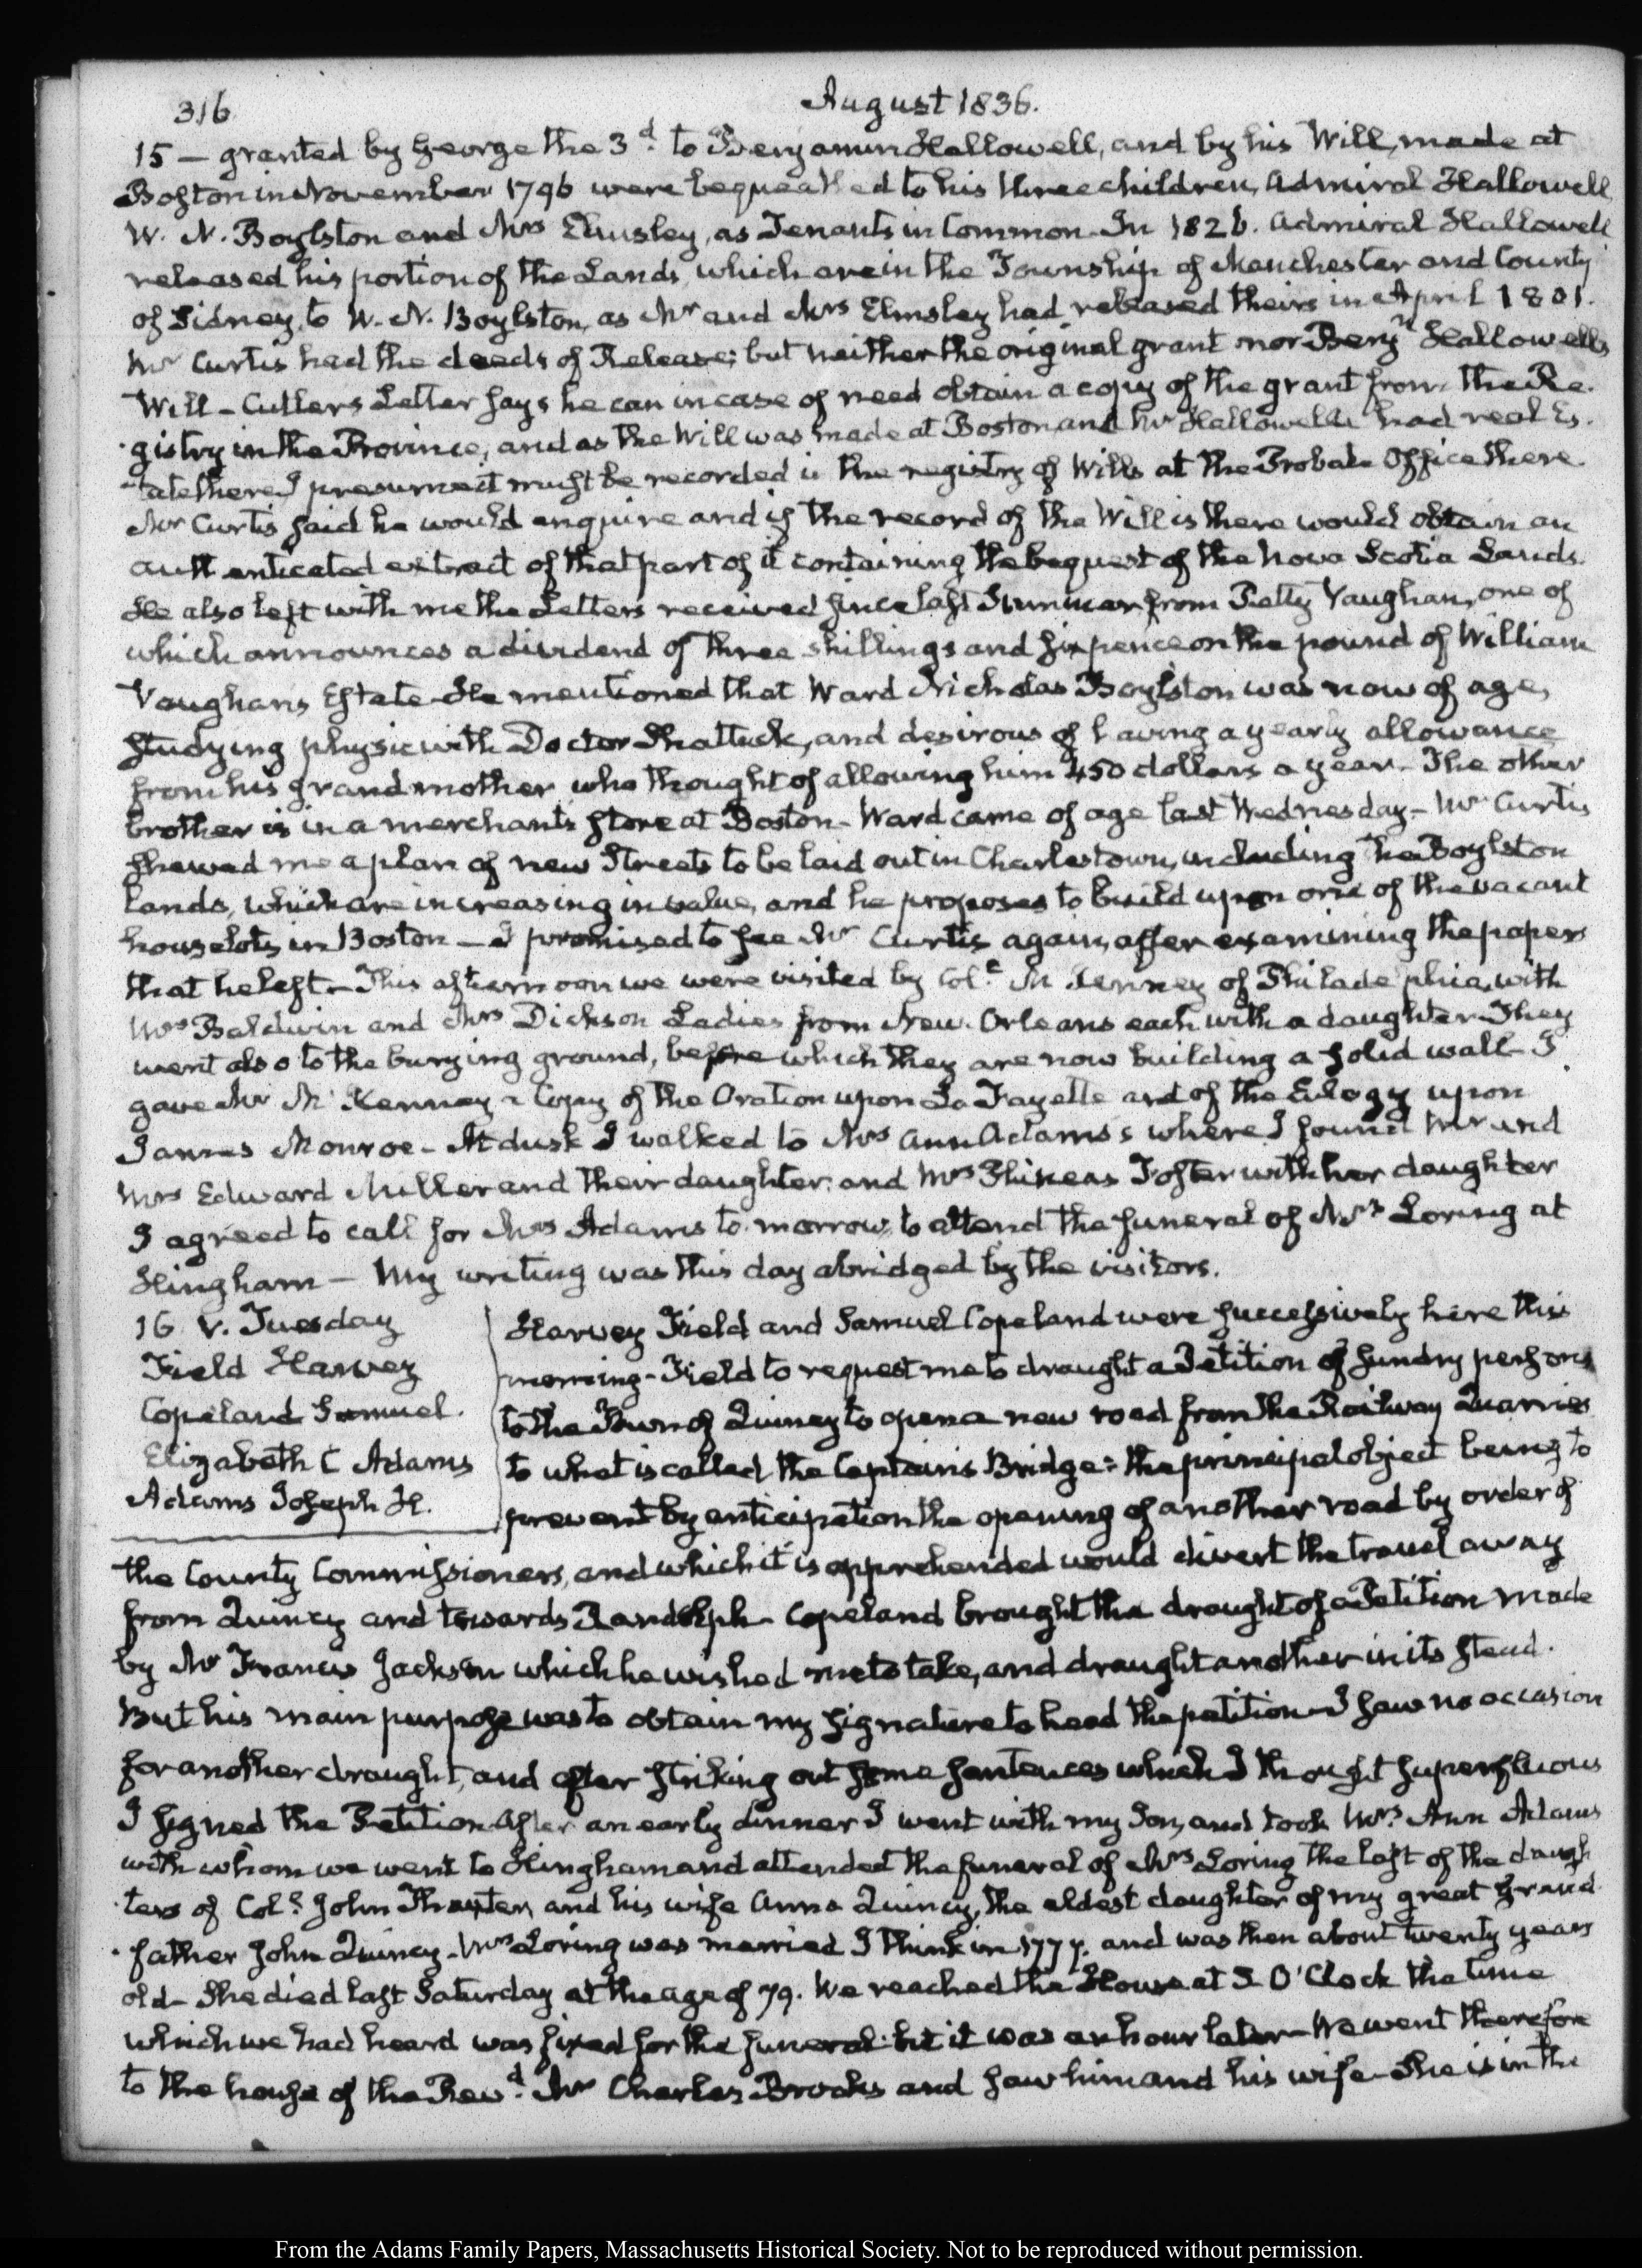 316
August 1836.
15 — granted by George the 3.d to Benjamin Hallowell, and by his Will, made at
Boston in November 1796 were bequeathed to his three children, Admiral Hallowell,
W. N. Boylston and Mrs Elmsley, as Tenants in Common. In 1826. Admiral Hallowell
released his portion of the Lands, which are in the Township of Manchester and County
of Sidney, to W. N. Boylston, as Mr and Mrs Elmsley had released theirs in April 1801.
Mr Curtis had the deeds of Release; but neither the original grant nor Benjn Hallowells
Will — Cutlers Letter says he can in case of need obtain a copy of the grant from the Re-
gistry in the Province, and as the Will was made at Boston, and Mr Hallowell had real Es-
tate there I presume it must be recorded in the registry of Wills at the Probate Office there
Mr Curtis said he would enquire and if the record of the Will is there would obtain an
authenticated extract of that part of it containing the bequest of the Nova Scotia Lands.
He also left with me the Letters received since last Summer from Petty Vaughan, one of
which announces a dividend of three shillings and sixpence on the pound of William
Vaughans Estate. He mentioned that Ward Nicholas Boylston was now of age,
studying physic with Doctor Shattuck, and desirous of having a yearly allowance
from his grandmother who thought of allowing him 450 dollars a year. The other
brother is in a merchants store at Boston — Ward came of age last Wednesday — Mr Curtis
shewed me a plan of new Streets to be laid out in Charlestown, including the Boylston
lands, which are increasing in value, and he proposes to build upon one of the vacant
house lots in Boston — I promised to see Mr Curtis again, after examining the papers
that he left — This afternoon we were visited by Col. McKenney of Philadelphia, with
Mrs Baldwin and Mrs Dickson Ladies from New-Orleans each with a daughter They
went also to the burying ground, before which they are now building a solid wall — I
gave Mr McKenney a Copy of the Oration upon La Fayette and of the Eulogy upon
James Monroe — At dusk I walked to Mrs Ann Adams's where I found Mr and
Mrs Edward Miller and their daughter, and Mrs Phineas Foster with her daughter
I agreed to call for Mrs Adams to-morrow, to attend the funeral of Mrs Loring at
Hingham — My writing was this day abridged by the visitors.
16. V. Tuesday
Field Harvey
Copeland Samuel.
Elizabeth C Adams
Adams Joseph H.
Harvey Field and Samuel Copeland were successively here this
morning — Field to request me to draught a Petition of sundry persons
to the Town of Quincy to open a new road from the Railway Quarries
to what is called the Captains Bridge: the principal object being to
prevent by anticipation the opening of another road by order of
the County Commissioners, and which it is apprehended would divert the travel away
from Quincy and towards Randolph — Copeland brought the draught of a Petition made
by Mr Francis Jackson which he wished me to take, and draught another in its stead.
But his main purpose was to obtain my signature to head the petition — I saw no occasion
for another draught, and after striking out some sentences which I thought superfluous
I signed the Petition. After an early dinner I went with my Son, and took Mrs. Ann Adams
with whom we went to Hingham and attended the funeral of Mrs Loring the last of the daugh-
ters of Col. John Thaxter, and his wife Anna Quincy, the eldest daughter of my great Grand-
father John Quincy — Mrs Loring was married I think in 1777. and was then about twenty years
old — She died last Saturday at the age of 79. We reached the House at 3 O'Clock the time
which we had heard was fixed for the funeral: but it was an hour later — We went therefore
to the house of the Rev.d Mr Charles Brooks and saw him and his wife — She is in the
From the Adams Family Papers, Massachusetts Historical Society. Not to be reproduced without permission.